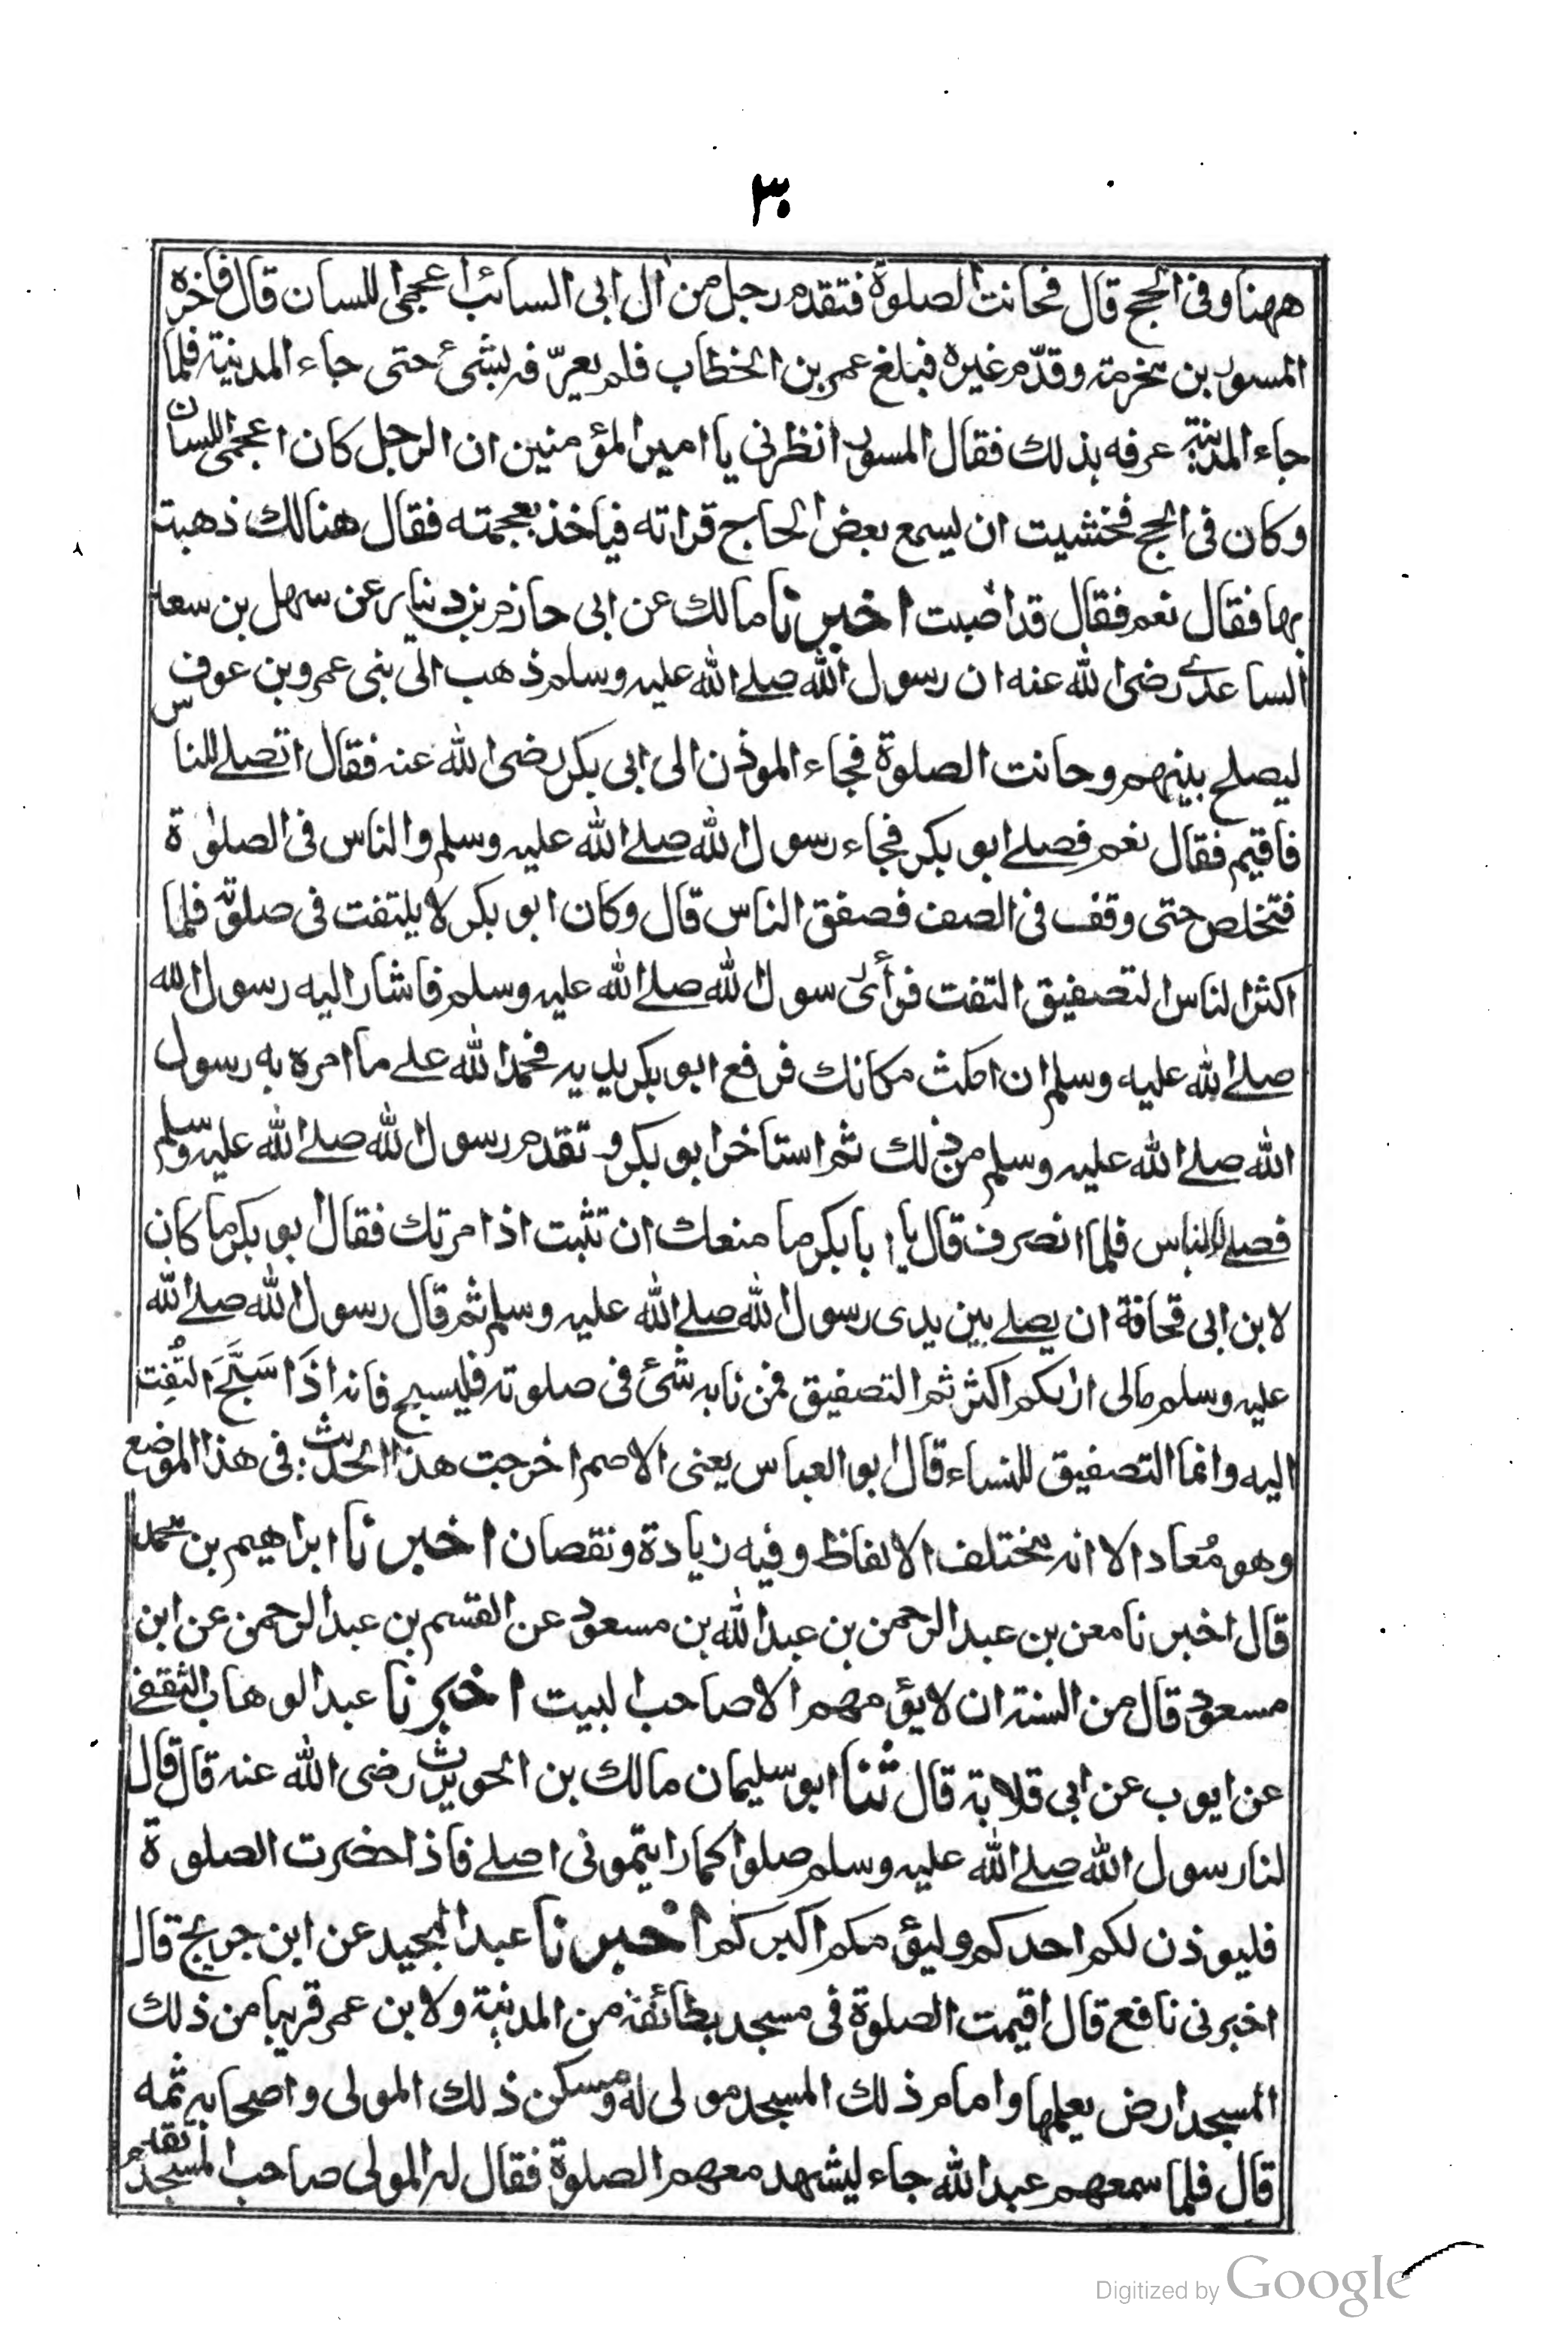 ٣٠
ههنا وفى الحج قال فحانت الصلوة فتقدم رجل من ال ابى السائب اعجمى اللسان قال فاخره
المسور بن مخرمة وقدّم غيره فبلغ عمر بن الخطاب فلم يعرّفه بشئ حتى جاء المدينة فلما
جاء المدينة عرفه بذلك فقال المسور انظرنى يا امير المؤمنين ان الرجل كان اعجمى اللسان
وكان فى الحج فخشيت ان يسمع بعض الحاج قراته فياخذ بعجمته فقال هنالك ذهبت
بها فقال نعم فقال قد اصبت اخبرنا مالك عن ابى حازم بن دينار عن سهل بن سعد
الساعدى رضى الله عنه ان رسول الله صلے الله عليه وسلم ذهب الى بنى عمرو بن عوف
ليصلح بينهم وحانت الصلوة فجاء الموذن الى ابى بكر رضى الله عنه فقال اتصلے للناس
فاقيم فقال نعم فصلے ابو بكر فجاء رسول الله صلے الله عليه وسلم والناس فى الصلوة
فتخلص حتى وقف فى الصف فصفق الناس قال وكان ابو بكر لا يلتفت فى صلوته فلما
اكثر الناس التصفيق التفت فرأى رسول الله صلے الله عليه وسلم فاشار اليه رسول الله
صلے الله عليه وسلم ان امكث مكانك فرفع ابو بكر يديه فحمد الله علے ما امره به رسول
الله صلے الله عليه وسلم من ذلك ثم استاخر ابو بكر و تقدم رسول الله صلے الله عليه وسلم
فصلے للناس فلما انصرف قال يا ابا بكر ما منعك ان تثبت اذ امرتك فقال ابو بكر ما كان
لابن ابى قحافة ان يصلے بين يدى رسول الله صلے الله عليه وسلم ثم قال رسول الله صلے الله
عليه وسلم مالى اراكم اكثرتم التصفيق فمن نابه شئ فى صلوته فليسبح فانه اذَا سَبَّحَ التُفِت
اليه وانما التصفيق للنساء قال ابو العباس يعنى الاصم اخرجت هذا الحديث فى هذا الموضع
وهو مُعاد الا انه مختلف الالفاظ وفيه زيادة ونقصان اخبرنا ابراهيم بن محمد
قال اخبرنا معن بن عبد الرحمن بن عبد الله بن مسعود عن القسم بن عبد الرحمن عن ابن
مسعود قال من السنة ان لا يؤمهم الا صاحب البيت اخبرنا عبد الوهاب الثقفى
عن ايوب عن ابى قلابة قال ثنا ابو سليمان مالك بن الحويرث رضى الله عنه قال قال
لنا رسول الله صلے الله عليه وسلم صلوا كما رايتمونى اصلے فاذا حضرت الصلوة
فليوذن لكم احدكم وليؤمكم اكبركم اخبرنا عبد المجيد عن ابن جريج قال
اخبرنى نافع قال اقيمت الصلوة فى مسجد بطائفة من المدينة ولابن عمر قريبا من ذلك
المسجد ارض يعملها وامام ذلك المسجد مولى له ومسكن ذلك المولى واصحابه ثمه
قال فلما سمعهم عبد الله جاء ليشهد معهم الصلوة فقال له المولى صاحب المسجد تقدم
Digitized by Google